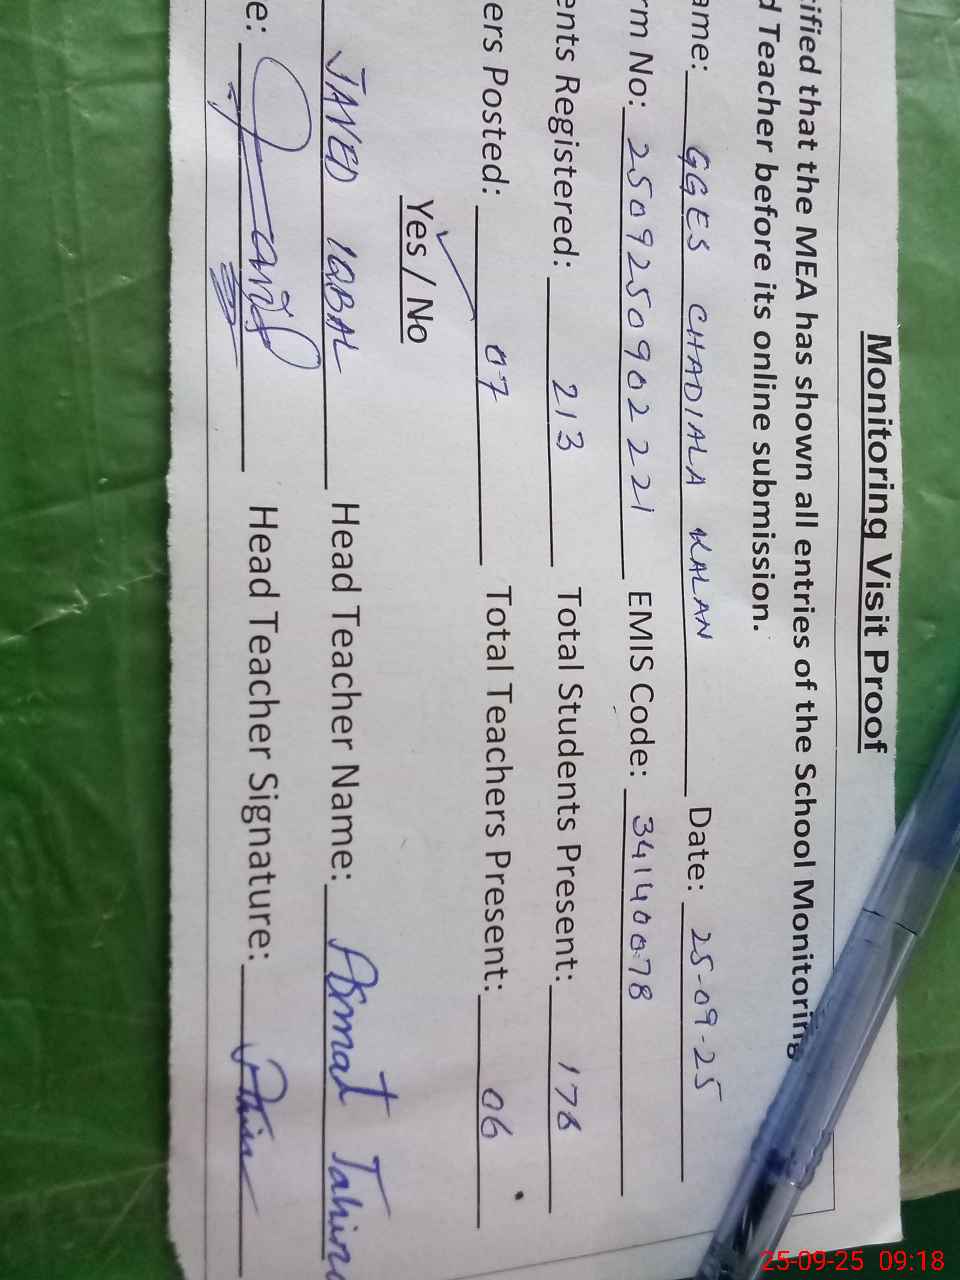 Monitoring Visit Proof
tified that the MEA has shown all entries of the School Monitoring
d Teacher before its online submission.
ame: GGES CHADIALA KALAN Date: 25-09-25
rm No: 2509250902221 EMIS Code: 34140078
ents Registered: 213 Total Students Present: 178
ers Posted: 07 Total Teachers Present: 06
Yes / No
JAVED IQBAL Head Teacher Name: Asmat Tahira
e: Head Teacher Signature:
25-09-25 09:18